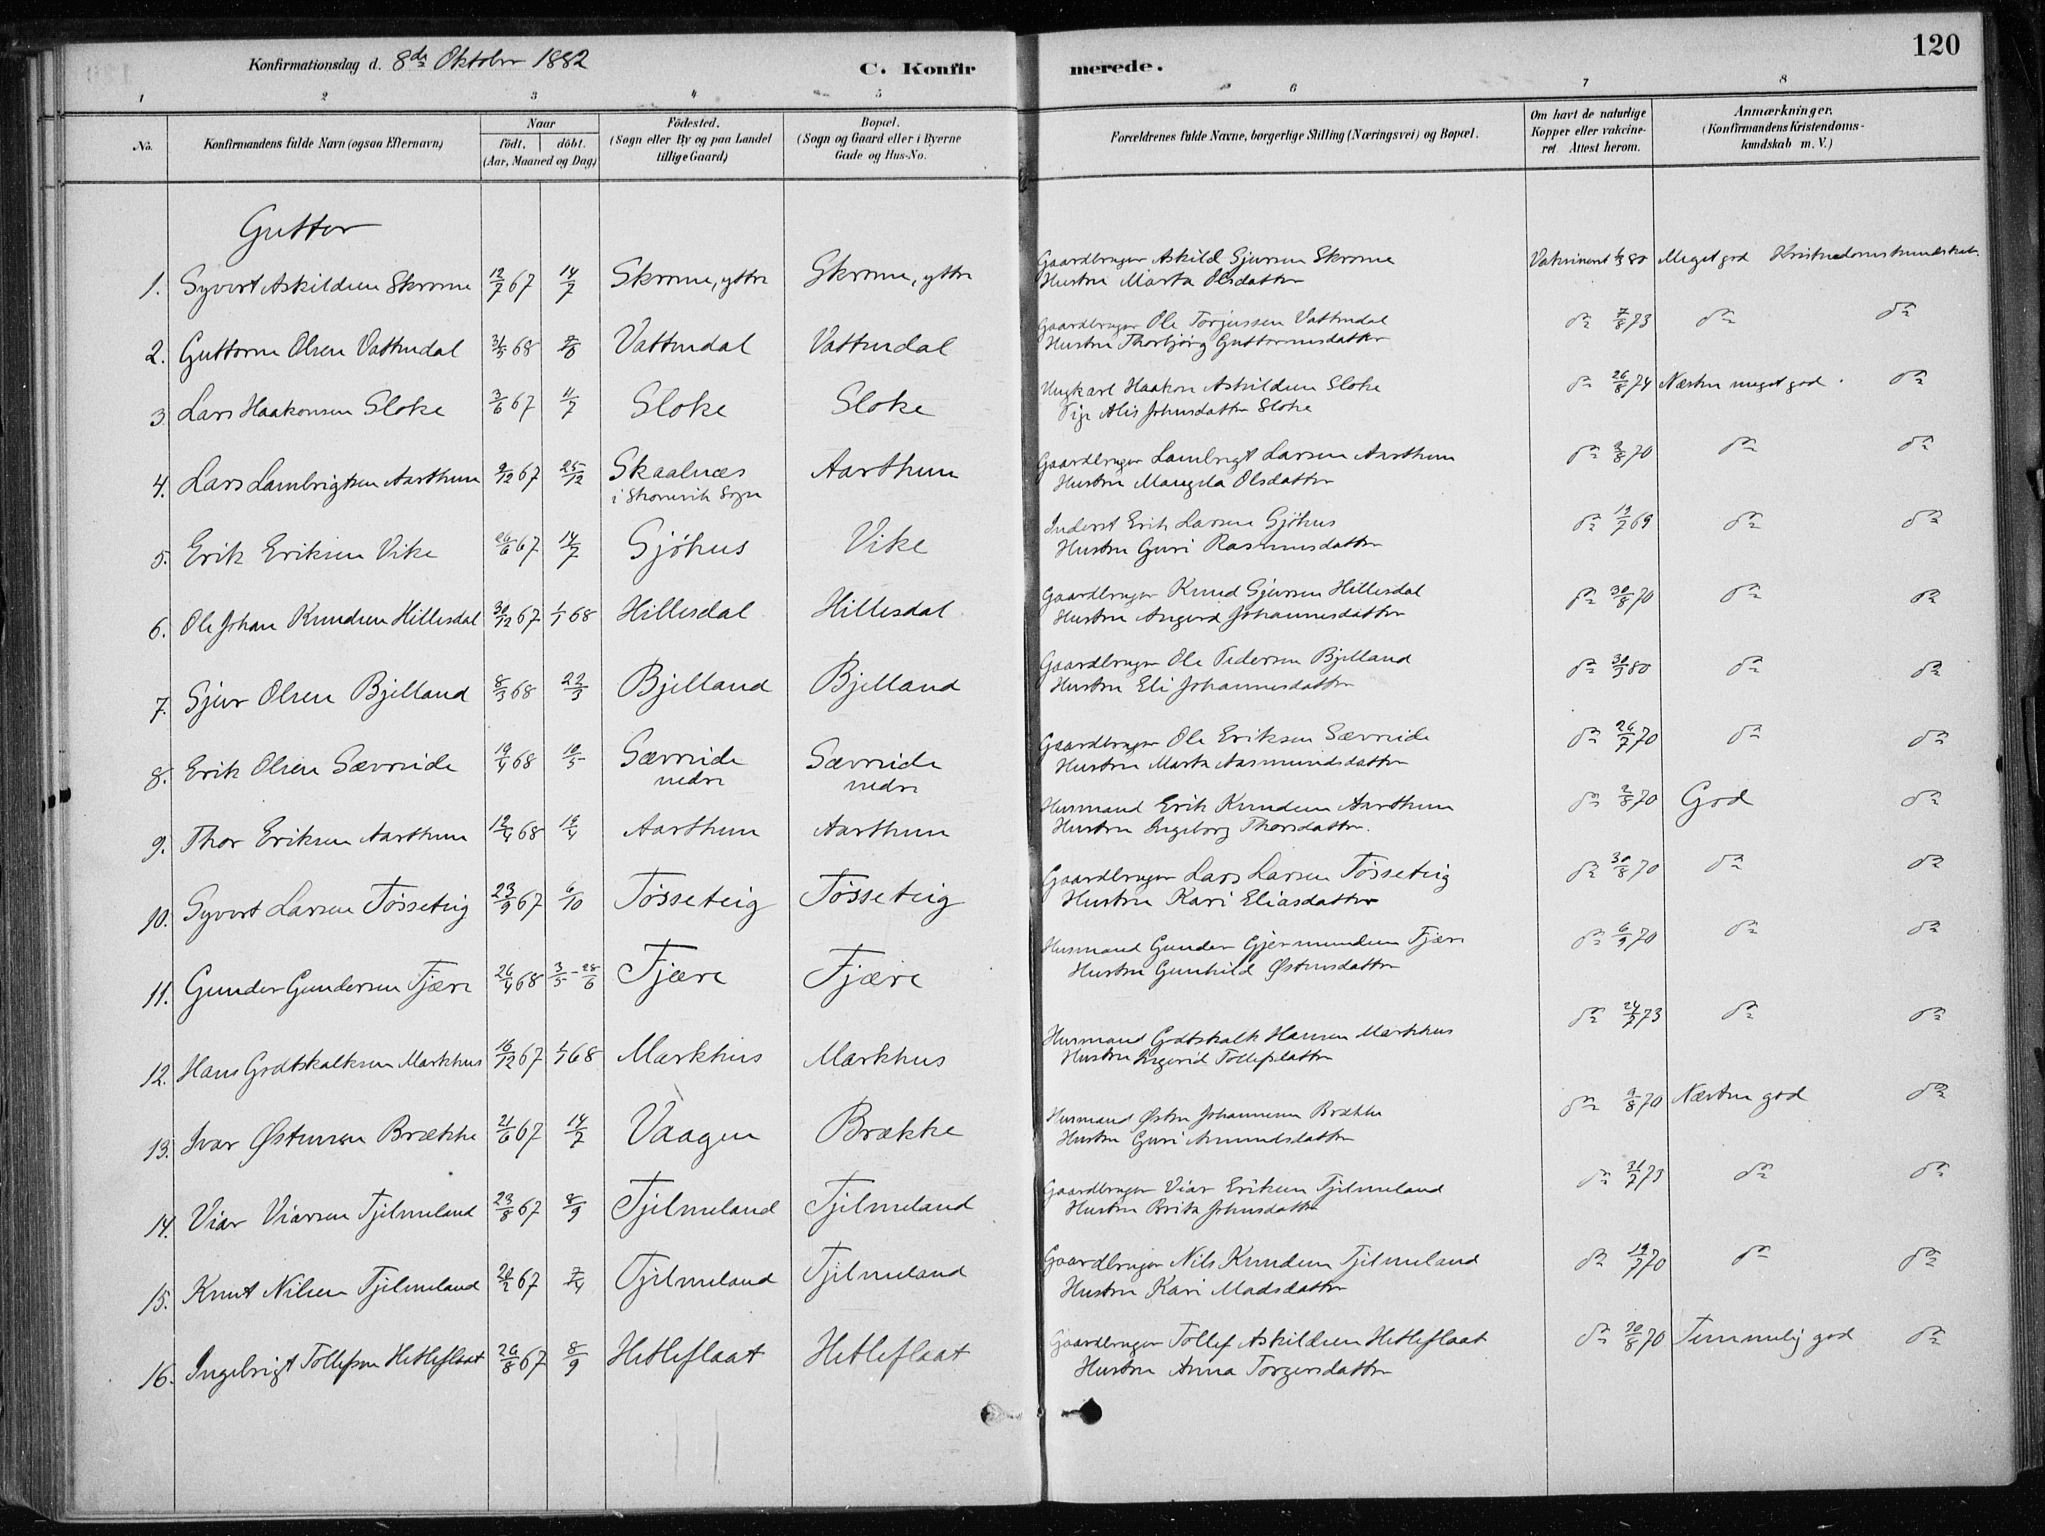 Konfirmationsdag d. 8de Oktober 1882
C. Konfirmerede.
120
1 2 3 4 5 6 7 8
No.
Konfirmandens fulde Navn (ogsaa Efternavn)
Naar
födt. döbt.
(Aar, Maaned og Dag)
Födested.
(Sogn eller By og paa Landet tillige Gaard)
Bopæl.
(Sogn og Gaard eller i Byerne Gade og Hus-No.
Forældrenes fulde Navne, borgerlige Stilling (Næringsvei) og Bopæl.
Om havt de naturlige Kopper eller vakcineret Attest herom.
Anmærkninger.
(Konfirmandens Kristendomskundskab m. V.)
Gutter
1. Syvert Askildsen Skrome 12/7 67 14/7 Skrome, yttre Skrome, yttre Gaardbruger Askild Sjursen Skrome Vakcineret 80 Meget god Kristendomskundskab
Hustru Marta Olsdatter
2. Guttorm Olsen Vattendal 31/5 68 7/6 Vattendal Vattendal Gaardbruger Ole Torjussen Vattendal do 7/8 73 do do
Hustru Thorbjörg Guttormsdatter
3. Lars Haakonsen Sloke 3/6 67 11/7 Sloke Sloke Ungkarl Haakon Askildsen Sloke do 26/8 74 Næsten meget god . do
Pige Alis Johnsdatter Sloke
4. Lars Lambrigtsen Aarthun 9/12 67 25/12 Skaalnæs Aarthun Gaardbruger Lambrigt Larsen Aarthun do 9/8 70 do do
i Skonevik Sogn Hustru Mangela Olsdatter
5. Erik Eriksen Vike 26/6 67 14/7 Sjöhus Vike Inderst Erik Larsen Sjöhus do 19/7 69 do do
Hustru Guri Rasmusdatter
6. Ole Johan Knudsen Hillesdal 30/12 67 1/1 68 Hillesdal Hillesdal Gaardbruger Knud Sjursen Hillesdal do 30/8 70 do do
Hustru Angerd Johannesdatter
7. Sjur Olsen Bjelland 8/3 68 22/3 Bjelland Bjelland Gaardbruger Ole Pedersen Bjelland do 30/9 80 do do
Hustru Eli Johannesdatter
8. Erik Olsen Sævreide 19/4 68 10/5 Sævreide nedre Sævreide nedre Gaardbruger Ole Eriksen Sævreide do 26/7 70 do do
Hustru Marta Aasmundsdatter
9. Thor Eriksen Aarthun 12/4 68 19/4 Aarthun Aarthun Husmand Erik Knudsen Aarthun do 9/8 70 God do
Hustru Ingeborg Thorsdatter.
10. Syvert Larsen Tösseteig 23/9 67 6/10 Tösseteig Tösseteig Gaardbruger Lars Larsen Tösseteig do 30/8 70 do do
Hustru Kari Eliasdatter
11. Gunder Gundersen Fjære 26/4 68 3/5 - 28/6 Fjære Fjære Husmand Gunder Gjermundsen Fjære do 6/9 70 do do
Hustru Gunhild Østensdatter
12. Hans Godtskalksen Markhus 16/12 67 1/1 68 Markhus Markhus Husmand Godtskalk Hansen Markhus do 24/7 73 do do
Hustru Ingerid Tollefsdatter
13. Ivar Østensen Brække 21/6 67 14/7 Vaagen Brække Husmand Østen Johannesen Brække do 9/8 70 Næsten god do
Hustru Guri Amundsdatter
14. Viar Viarsen Fjelmeland 23/8 67 8/9 Fjelmeland Fjelmeland Gaardbruger Viar Eriksen Fjelmeland do 31/7 73 do do
Hustru Brita Johnsdatter
15. Knut Nilsen Fjelmeland 22/2 67 7/4 Fjelmeland Fjelmeland Gaardbruger Nils Knudsen Fjelmeland do 19/7 70 do do
Hustru Kari Madsdatter
16. Ingebrigt Tollefsen Hetleflaat 26/8 67 8/9 Hetleflaat Hetleflaat Gaardbruger Tollef Askildsen Hetleflaat do 30/8 70 Temmelig god do
Hustru Anna Torgersdatter